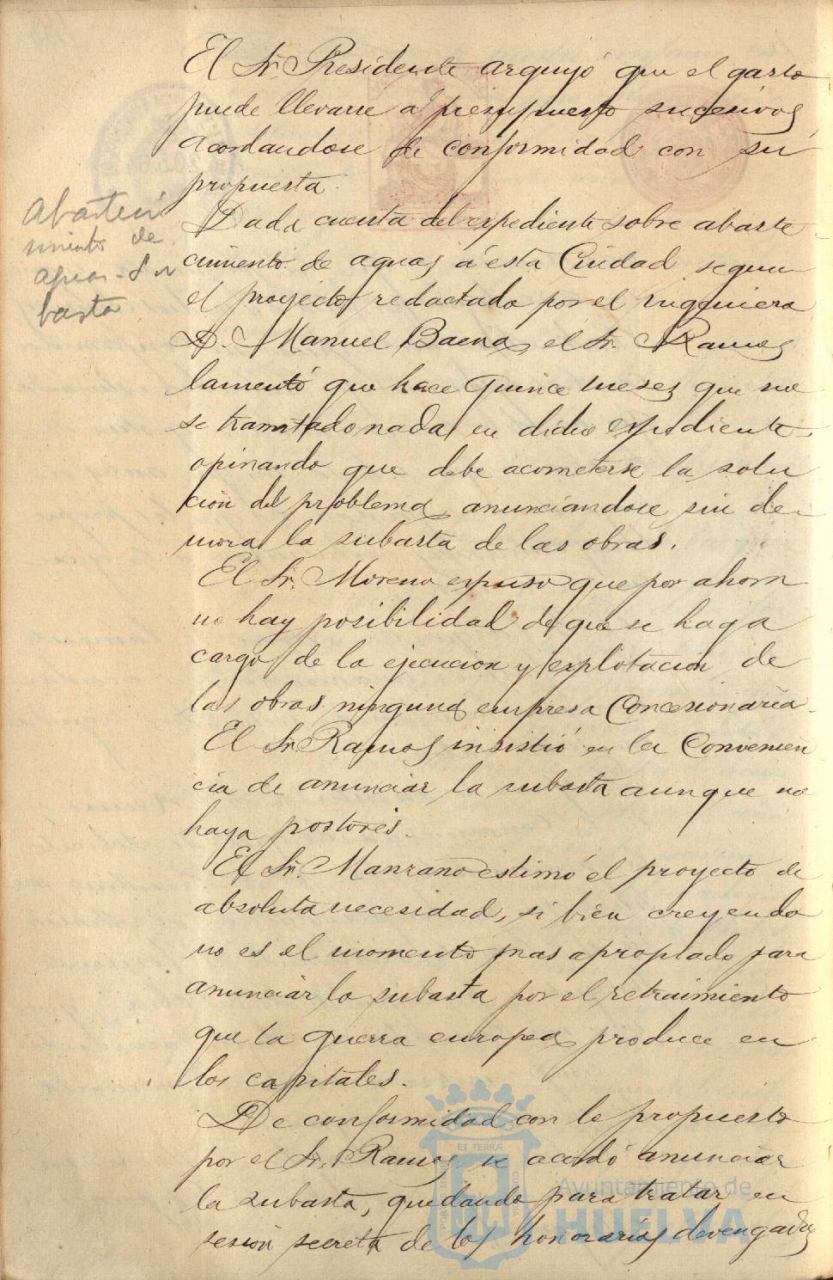 El Sr. Presidente arguyó que el gasto
puede llevarse a presupuesto sucesivos
acordandose de conformidad con su
propuesta.
Abasteci
miento de
aguas - Su
basta
Dada cuenta del expediente sobre abaste
cimiento de aguas á esta Ciudad segun
el proyecto redactado por el ingeniero
D. Manuel Baena, el Sr. Ramos
lamentó que hace quince meses que no
se tramitado nada en dicho expediente,
opinando que debe acometerse la solu
cion del problema, anunciandose sin de-
mora la subasta de las obras.
El Sr. Moreno expuso que por ahora
no hay posibilidad de que se haga
cargo de la ejecucion y explotacion de
las obras ninguna empresa Concesionaria.
El Sr. Ramos insistió en la Convenien
cia de anunciar la subasta aunque no
haya postores.
El Sr. Manzano estimó el proyecto de
absoluta necesidad, si bien creyendo
no es el momento mas apropiado para
anunciar la subasta por el retraimiento
que la guerra europea produce en
los capitales.
De conformidad con lo propuesto
por el Sr. Ramos se acordó anunciar
la subasta, quedando para tratar en
sesion secreta de los honorarios devengados
Ayuntamiento de
HUELVA